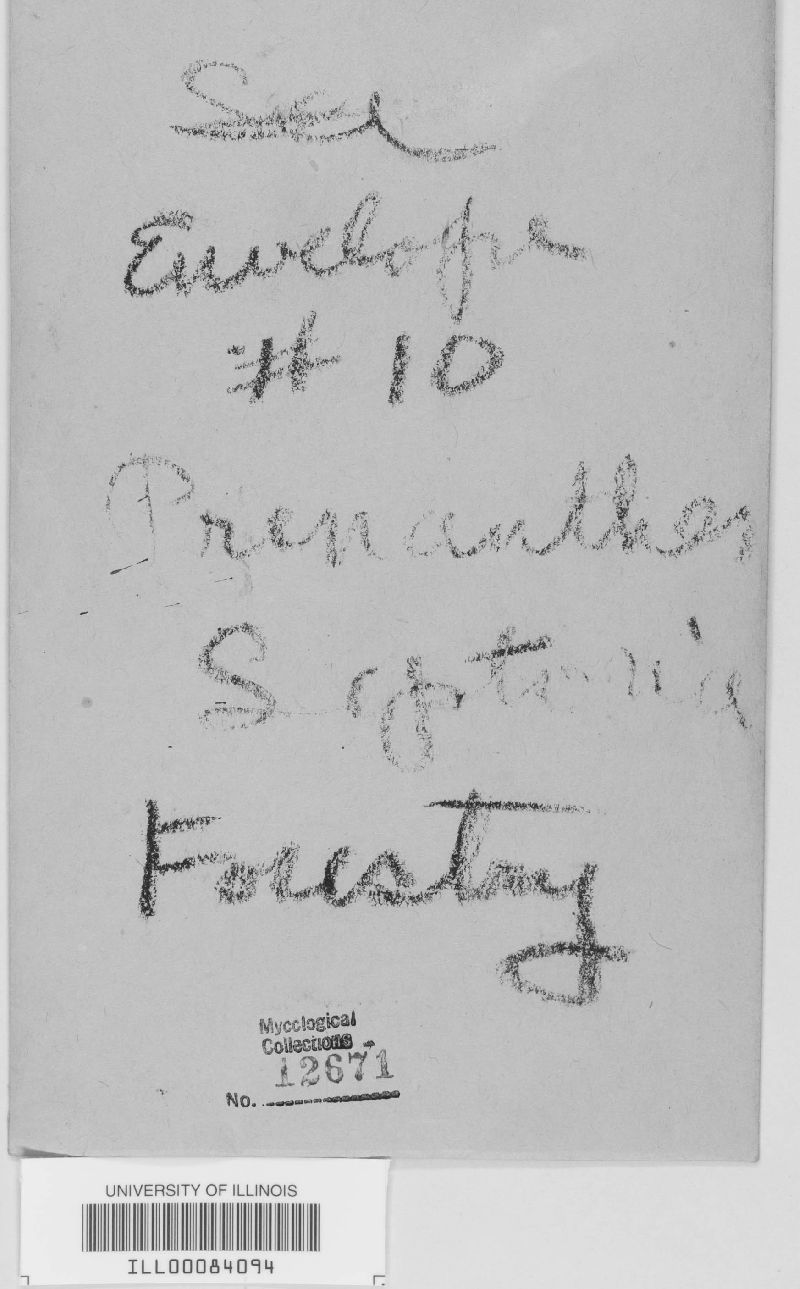 See
Envelope
# 10
Prenanthes
Septoria
Forestry
Mycological
Collections
12671
No.
UNIVERSITY OF ILLINOIS
ILL00084094